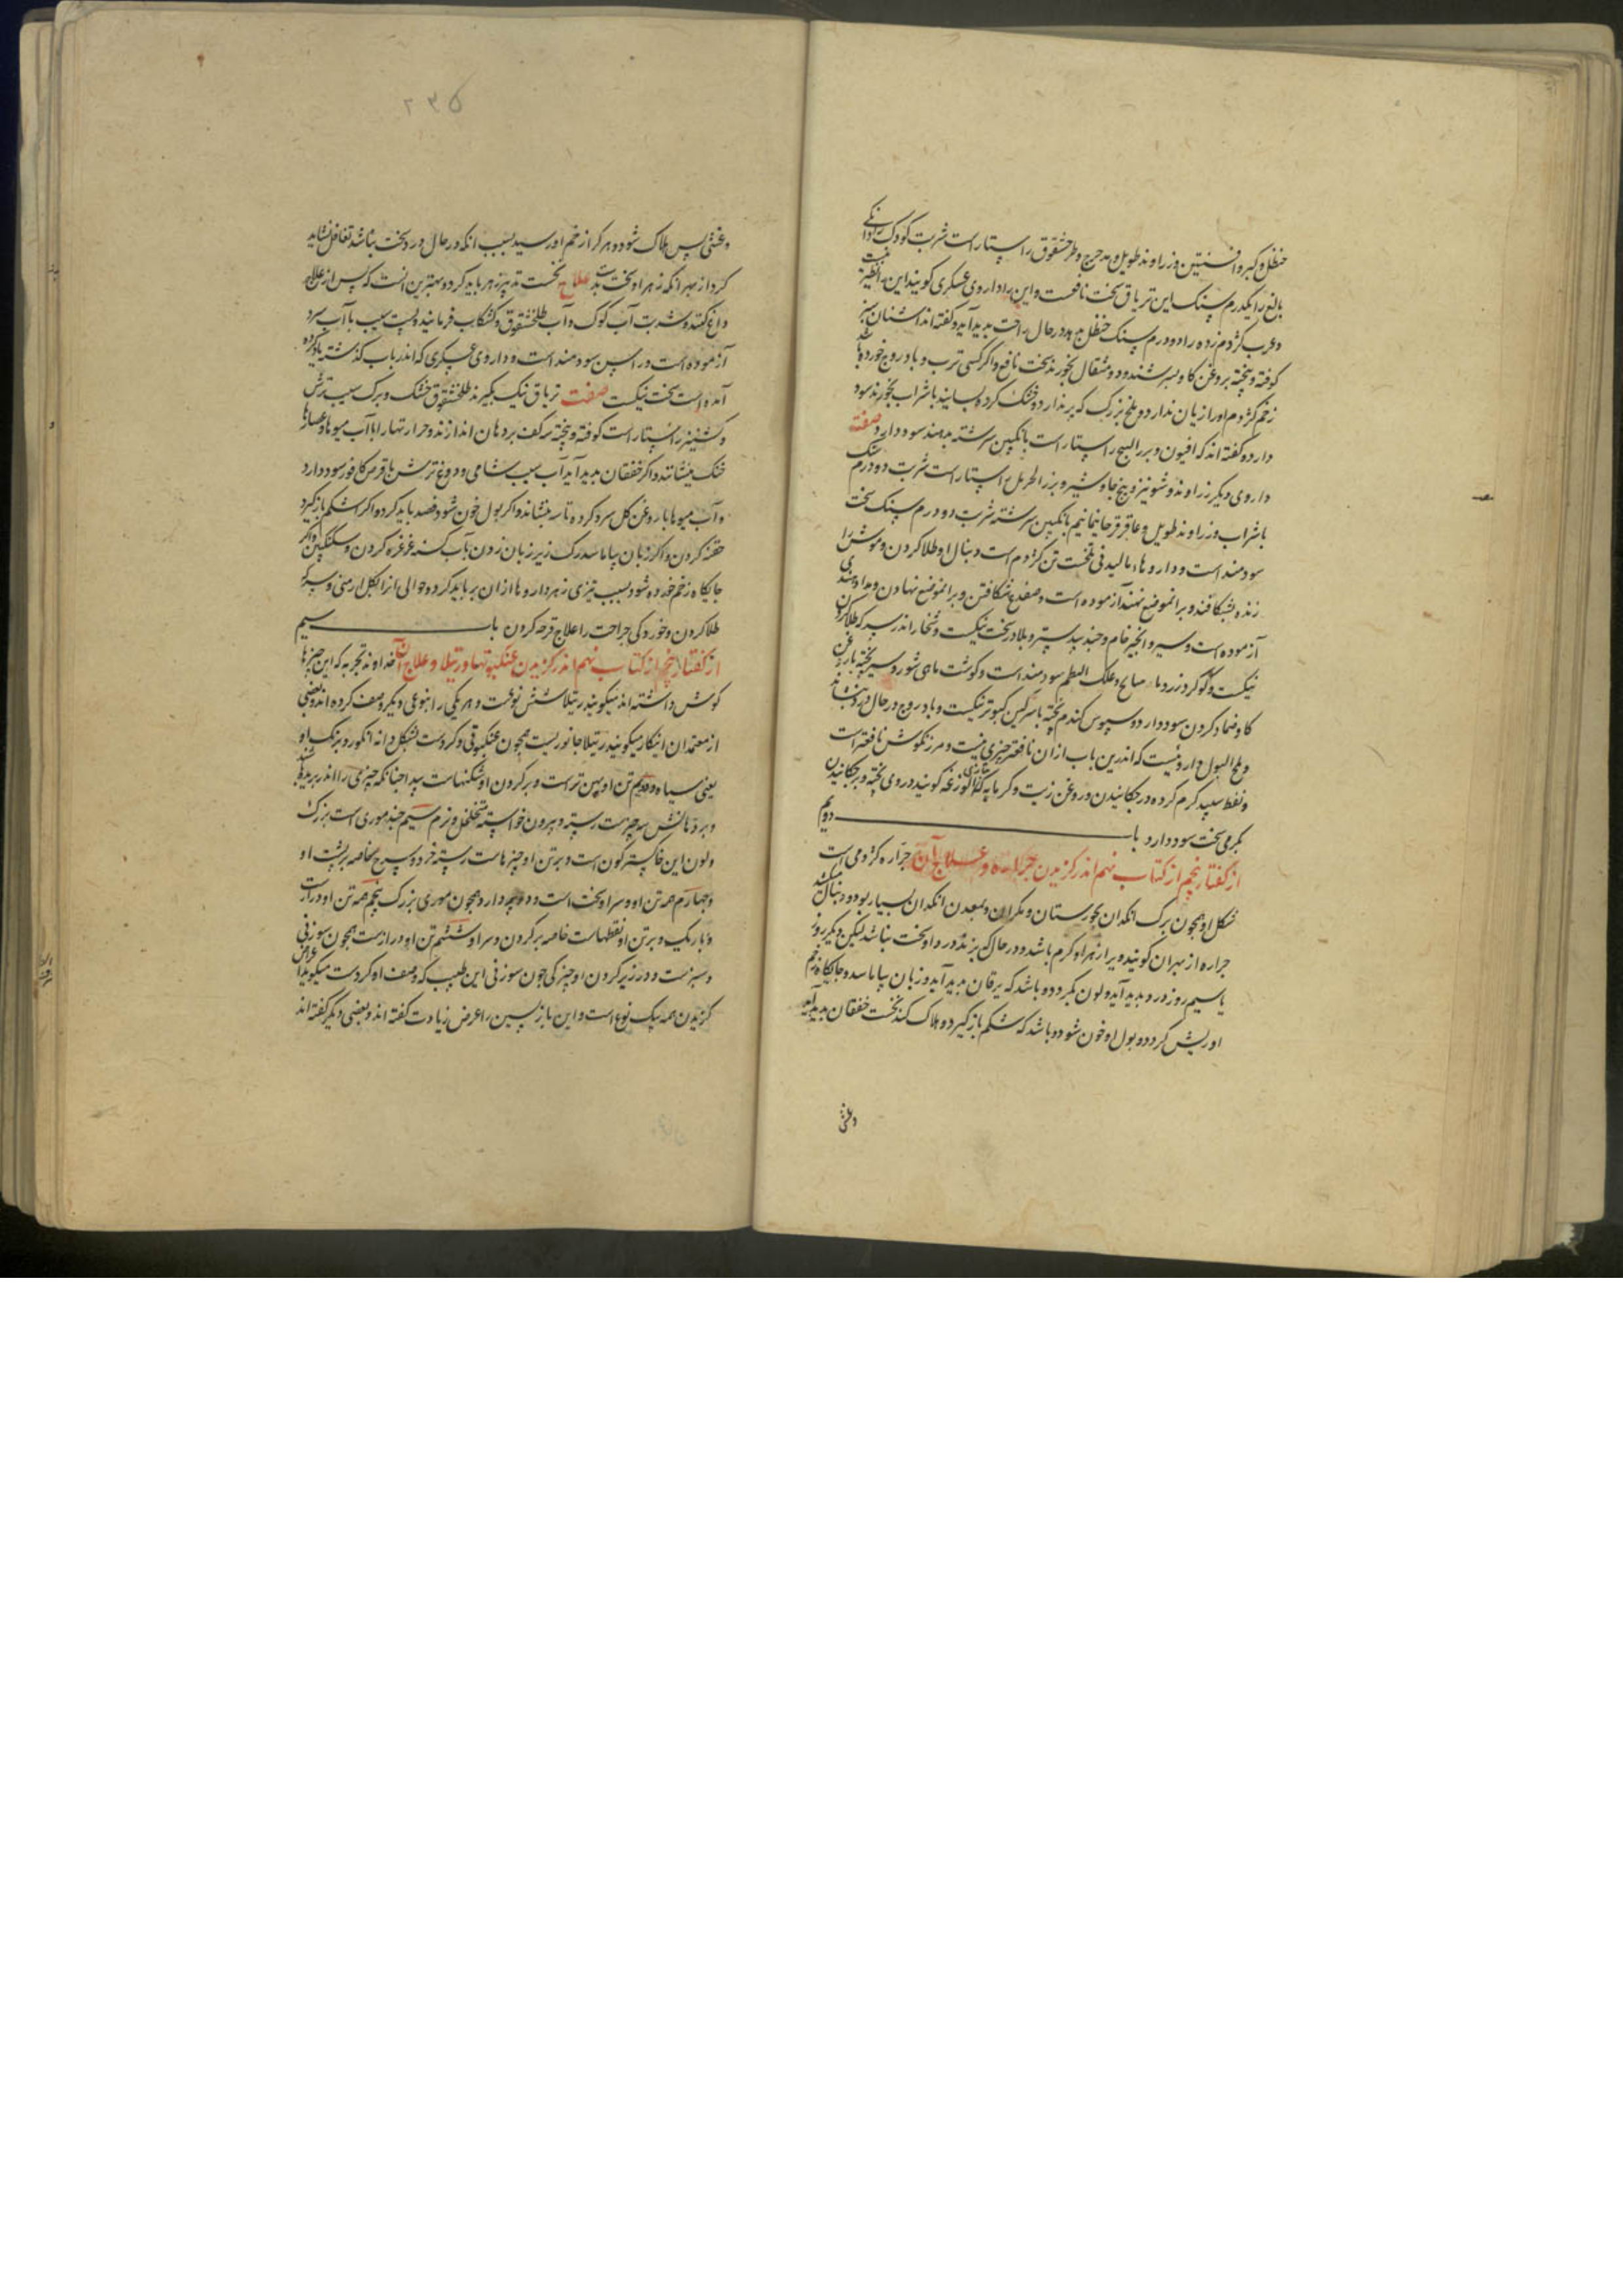 حنظل و کبر و افسنتین و زراوند طویل و مدحرج و طرخشقوق راستاراست شربت کودک را دانکی
بالغ را یکدرم سنک این تریاق سخت نافعست و این را داروی عسکری کویند این را نظیر نیست
و عرب کژدم زده را دو درم سنک حنظل بدهد در حال راحت بدید آید و کفته اند اشنان سبز
کوفته و پخته بروغن کاو بسرشند و دو مثقال بخورند سخت نافع و اکر کسی ترب و بادروج خورده باشد
زخم کژدم او را زیان ندارد و ملخ بزرک که پر ندارد خشک کرده بسایند با شراب بخورند سود
دارد و کفته اند که افیون و بزر البنج راستاراست بانکبین سرشته بدهند سود دارد صفت
داروی دیکر زراوند و شونیز و بیخ جاوشیر و بزر الحرمل راستاراست شربت دو درم سنک
با شراب و زراوند طویل و عاقرقرحا بانکبین سرشته شربت دو درم سنک سخت
سودمند است و داروها مالیدنی نخست تن کژدم است و دنبال او طلا کردن و موش را
زنده بشکافند و برانموضع نهند آزموده است و ضفدع شکافتن و برانموضع نهادن
آزموده است و سیر و انجیر خام و جندبیدستر و بلادر سخت نیکست و نخار اندر سرکه طلا کردن
نیکست و کوکرد زرد با علک البطم سودمند است و کوشت ماهی شور و سیر پخته با روغن
کاو ضماد کردن سود دارد و سبوس کندم پخته با سرکین کبوتر نیکست و بادروج در حال درد بنشاند
و ملح البول داروئیست که اندرین باب ازان نافعتر چیزی نیست و مرزنکوش نافعتر است
و نفط سپید کرم کرده در چکانیدن و روغن زیت و کرماپه که کویند در وی پخته و بر چکانیدن
بکرمی سخت سود دارد باب دویم
از کفتار پنجم از کتاب نهم اندر کزیدن جراره و علاج آن جراره کژدمی است
شکل او همچون برک انکدان بخوزستان و مکران و بمعدن انکدان بسیار بود و دنبال میکشد
جراره از بهر ان کویند و پر از زهر او کرم باشد و در حال که بزند درد او سخت نباشد لیکن دیکر روز
یا سیم روز درد بدید آید و لون بکردد و باشد که یرقان بدید آید و زبان بیاماسد و جایکاه زخم
او ریش کردد و بول او خون شود و باشد که شکم باز کیرد و هلاک کند نخست خفقان بدید آید
و غشی
۲۳۵
و غشی پس هلاک شود و هر کرا زخم او رسید بسبب انکه در حال درد سخت نباشد تغافل نشاید
کرد از بهر انکه زهر او سخت بد است علاج نخست تدبیر زهر باید کرد و بهترین انست که پس از علاج
داغ کنند و شربت آب کوک و آب طلخشقوق و کشکاب فرمایند و پست سیب با آب سرد
آزموده است و راسن سودمند است و داروی عسکری که اندر باب کذشته یاد کرده
آمده است سخت نیکست صفت تریاق نیک بکیرند طلخشقوق خشک و برک سیب ترش
و کشنیز راستاراست کوفته و پخته سه کف بردهان اندازند و حرارتها را با آب میوها و عصارها
خنک بنشانند و اکر خفقان بدید آید آب سیب شامی و دوغ ترش با قرص کافور سود دارد
و آب میوها با روغن کل سرد کرده تاسه بنشاند و اکر بول خون شود فصد باید کرد و اکر شکم باز کیرد
حقنه کردن و اکر زبان بیاماسد رک زیر زبان زدن بآب کسنه غرغره کردن و سکنکبین و اکر
جایکاه زخم خورده شود بسبب تیزی زهر داروها ازان بر باید کرد و حوالی انرا بکل ارمنی و سرکه
طلا کردن و خوردکی جراحت را علاج قرحه کردن باب سیم
از کفتار پنجم از کتاب نهم اندر کزیدن عنکبوتها و رتیلا و علاج آن خداوند تجربه که این چیزها
کوش داشته اند میکویند رتیلا شش نوعست و هر یکی را بنوعی دیکر وصف کرده اند و بعضی
از معتمدان انکار میکویند رتیلا جانوریست همچون عنکبوتی و کردست بشکل دانه انکور و برنک او
یعنی سیاه و دویم تن او پهن تر است و بر کردن او شکنهاست پیدا چنانکه چیزی را اندر بریده باشند
و بر دهانش سه چیزست رسته و بیرون خواسته متخلخل و نرم سیم چند موری است بزرک
و لون این خاکسترکون است و بر تن او چیزهاست رسته خرد و سرخ خاصه بر پشت او
و چهارم همه تن او و سر او سخت است و دو پر دارد همچون موری بزرک پنجم همه تن او درازست
و باریک و بر تن او نقطهاست خاصه بر کردن و سر او ششم تن او درازست همچون سوزنی
و سبزست و در زیر کردن او چیزکی چون سوزنی این طبیب که وصف او کردست میکوید اعراض
کزیدن همه یک نوع است و این بازپسین را عرض زیادت کفته اند و بعضی دیکر کفته اند